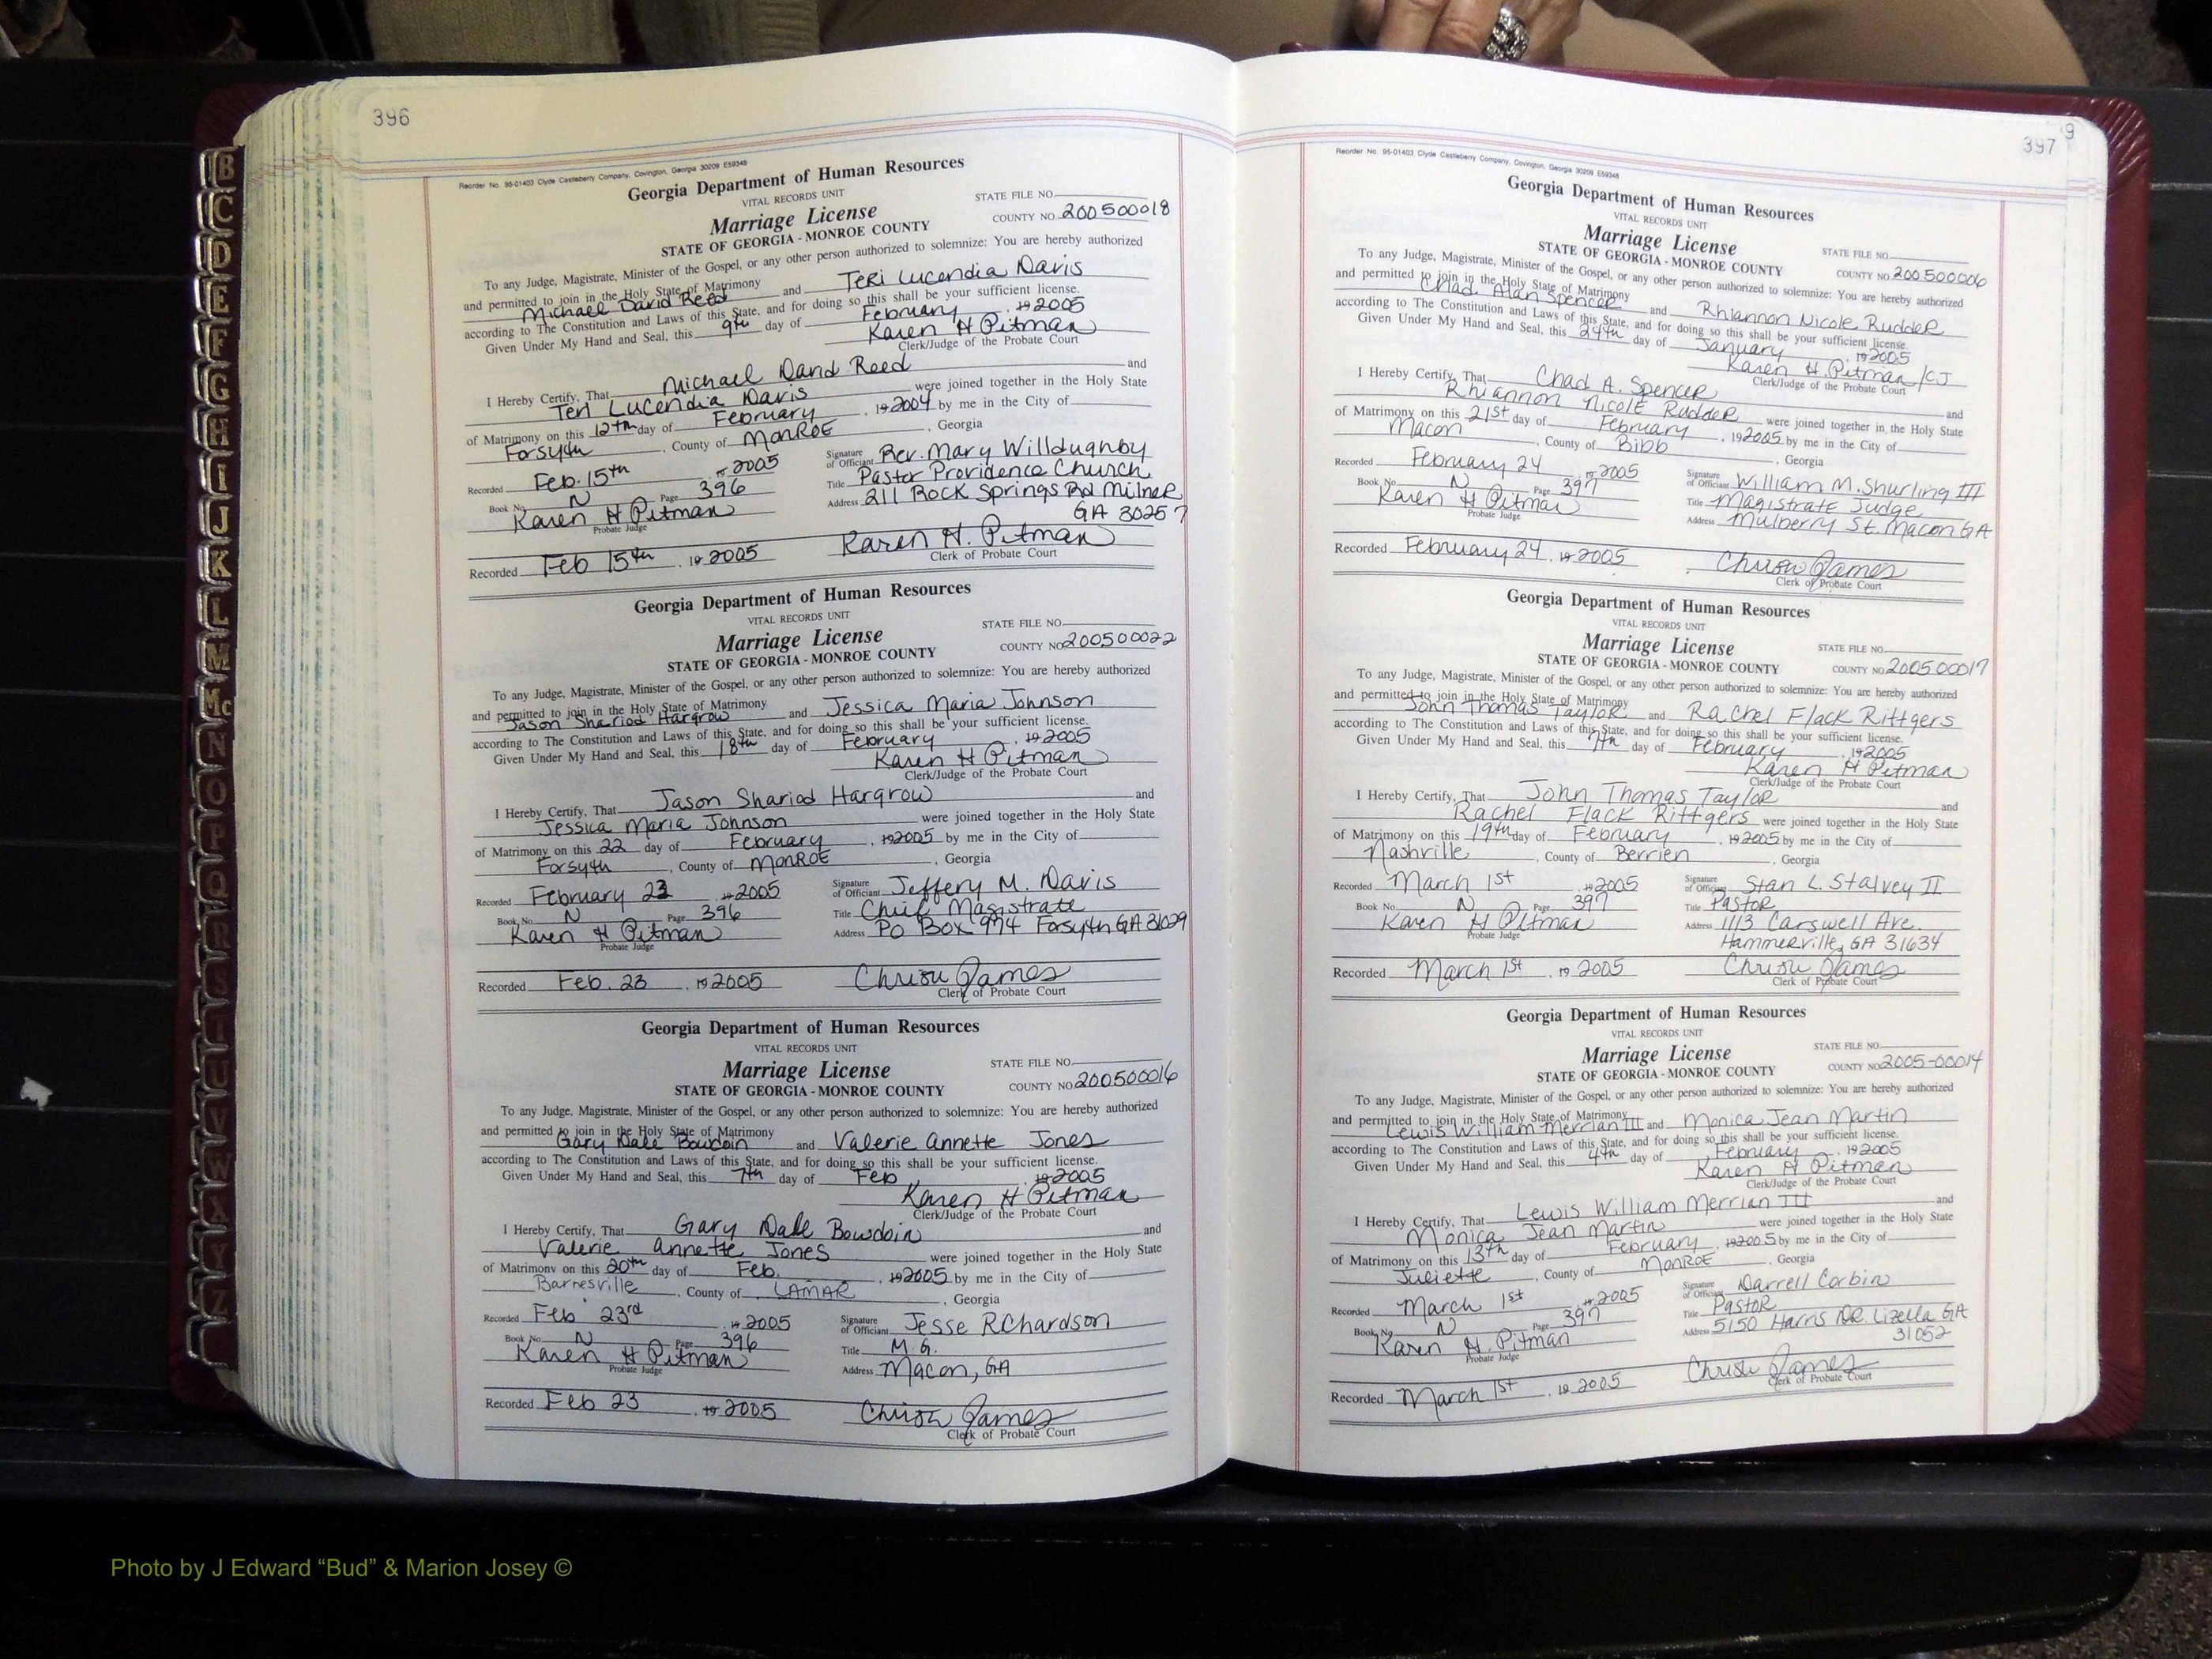 396
Reorder No. 95-01403 Clyde Castleberry Company, Covington, Georgia 30209 E59348
Georgia Department of Human Resources
VITAL RECORDS UNIT
STATE FILE NO.
Marriage License
COUNTY NO. 200500018
STATE OF GEORGIA - MONROE COUNTY
To any Judge, Magistrate, Minister of the Gospel, or any other person authorized to solemnize: You are hereby authorized
and permitted to join in the Holy State of Matrimony
Michael David Reed and Teri Lucendia Davis
according to The Constitution and Laws of this State, and for doing so this shall be your sufficient license.
Given Under My Hand and Seal, this 9th day of February, 19 2005
Karen H Pitman
Clerk/Judge of the Probate Court
I Hereby Certify, That Michael David Reed and
Teri Lucendia Davis were joined together in the Holy State
of Matrimony on this 12th day of February, 19 2004 by me in the City of
Forsyth, County of Monroe, Georgia
Recorded Feb. 15th 19 2005
Signature of Officiant Rev. Mary Willdughby
Book No. N Page 396
Title Pastor Providence Church
Karen H Pitman
Probate Judge
Address 211 Rock Springs Rd Milner
GA 30257
Recorded Feb 15th, 19 2005
Karen H. Pitman
Clerk of Probate Court
Georgia Department of Human Resources
VITAL RECORDS UNIT
STATE FILE NO.
Marriage License
COUNTY NO. 200500022
STATE OF GEORGIA - MONROE COUNTY
To any Judge, Magistrate, Minister of the Gospel, or any other person authorized to solemnize: You are hereby authorized
and permitted to join in the Holy State of Matrimony
Jason Shariod Hargrow and Jessica Maria Johnson
according to The Constitution and Laws of this State, and for doing so this shall be your sufficient license.
Given Under My Hand and Seal, this 18th day of February, 19 2005
Karen H Pitman
Clerk/Judge of the Probate Court
I Hereby Certify, That Jason Shariod Hargrow and
Jessica Maria Johnson were joined together in the Holy State
of Matrimony on this 22 day of February, 19 2005 by me in the City of
Forsyth, County of Monroe, Georgia
Recorded February 23 19 2005
Signature of Officiant Jeffery M. Davis
Book No. N Page 396
Title Chief Magistrate
Karen H Pitman
Probate Judge
Address PO Box 974 Forsyth GA 31029
Recorded Feb. 23, 19 2005
James
Clerk of Probate Court
Georgia Department of Human Resources
VITAL RECORDS UNIT
STATE FILE NO.
Marriage License
COUNTY NO. 200500016
STATE OF GEORGIA - MONROE COUNTY
To any Judge, Magistrate, Minister of the Gospel, or any other person authorized to solemnize: You are hereby authorized
and permitted to join in the Holy State of Matrimony
Gary Dale Bowdoin and Valerie Annette Jones
according to The Constitution and Laws of this State, and for doing so this shall be your sufficient license.
Given Under My Hand and Seal, this 7th day of Feb, 19 2005
Karen H Pitman
Clerk/Judge of the Probate Court
I Hereby Certify, That Gary Dale Bowdoin and
Valerie Annette Jones were joined together in the Holy State
of Matrimony on this 20th day of Feb., 19 2005 by me in the City of
Barnesville, County of LAMAR, Georgia
Recorded Feb 23rd 19 2005
Signature of Officiant Jesse RChardson
Book No. N Page 396
Title M.G.
Karen H Pitman
Probate Judge
Address Macon, GA
Recorded Feb 23, 19 2005
James
Clerk of Probate Court
B
C
D
E
F
G
H
I
J
K
L
M
Mc
N
O
P
Q
R
S
T
U
V
W
X
Y
Z
9
397
Reorder No. 95-01403 Clyde Castleberry Company, Covington, Georgia 30209 E59348
Georgia Department of Human Resources
VITAL RECORDS UNIT
Marriage License
STATE FILE NO.
STATE OF GEORGIA - MONROE COUNTY
COUNTY NO. 200500006
To any Judge, Magistrate, Minister of the Gospel, or any other person authorized to solemnize: You are hereby authorized
and permitted to join in the Holy State of Matrimony
Chad Alan Spencer and Rhiannon Nicole Rudder
according to The Constitution and Laws of this State, and for doing so this shall be your sufficient license.
Given Under My Hand and Seal, this 24th day of January, 19 2005
Karen H. Pitman/CJ
Clerk/Judge of the Probate Court
I Hereby Certify, That Chad A. Spencer and
Rhiannon Nicole Rudder were joined together in the Holy State
of Matrimony on this 21st day of February, 19 2005 by me in the City of
Macon, County of Bibb, Georgia
Recorded February 24 19 2005
Signature of Officiant William M. Shurling III
Book No. N Page 397
Title Magistrate Judge
Karen H Pitman
Probate Judge
Address Mulberry St. Macon GA
Recorded February 24, 19 2005
James
Clerk of Probate Court
Georgia Department of Human Resources
VITAL RECORDS UNIT
Marriage License
STATE FILE NO.
STATE OF GEORGIA - MONROE COUNTY
COUNTY NO. 200500017
To any Judge, Magistrate, Minister of the Gospel, or any other person authorized to solemnize: You are hereby authorized
and permitted to join in the Holy State of Matrimony
John Thomas Taylor and Rachel Flack Rittgers
according to The Constitution and Laws of this State, and for doing so this shall be your sufficient license.
Given Under My Hand and Seal, this 7th day of February, 19 2005
Karen H Pitman
Clerk/Judge of the Probate Court
I Hereby Certify, That John Thomas Taylor and
Rachel Flack Rittgers were joined together in the Holy State
of Matrimony on this 19th day of February, 19 2005 by me in the City of
Nashville, County of Berrien, Georgia
Recorded March 1st 19 2005
Signature of Officiant Stan L. Stalvey II
Book No. N Page 397
Title Pastor
Karen H Pitman
Probate Judge
Address 1113 Carswell Ave.
Hammerville, GA 31634
Recorded March 1st, 19 2005
James
Clerk of Probate Court
Georgia Department of Human Resources
VITAL RECORDS UNIT
Marriage License
STATE FILE NO.
STATE OF GEORGIA - MONROE COUNTY
COUNTY NO. 2005-00014
To any Judge, Magistrate, Minister of the Gospel, or any other person authorized to solemnize: You are hereby authorized
and permitted to join in the Holy State of Matrimony
Lewis William Merrian III and Monica Jean Martin
according to The Constitution and Laws of this State, and for doing so this shall be your sufficient license.
Given Under My Hand and Seal, this 4th day of February, 19 2005
Karen H Pitman
Clerk/Judge of the Probate Court
I Hereby Certify, That Lewis William Merrian III and
Monica Jean Martin were joined together in the Holy State
of Matrimony on this 13th day of February, 19 2005 by me in the City of
Juliette, County of Monroe, Georgia
Recorded March 1st 19 2005
Signature of Officiant Darrell Corbin
Book No. N Page 397
Title Pastor
Karen H. Pitman
Probate Judge
Address 5150 Harris DR. Lizella GA
31052
Recorded March 1st, 19 2005
James
Clerk of Probate Court
Photo by J Edward “Bud” & Marion Josey ©